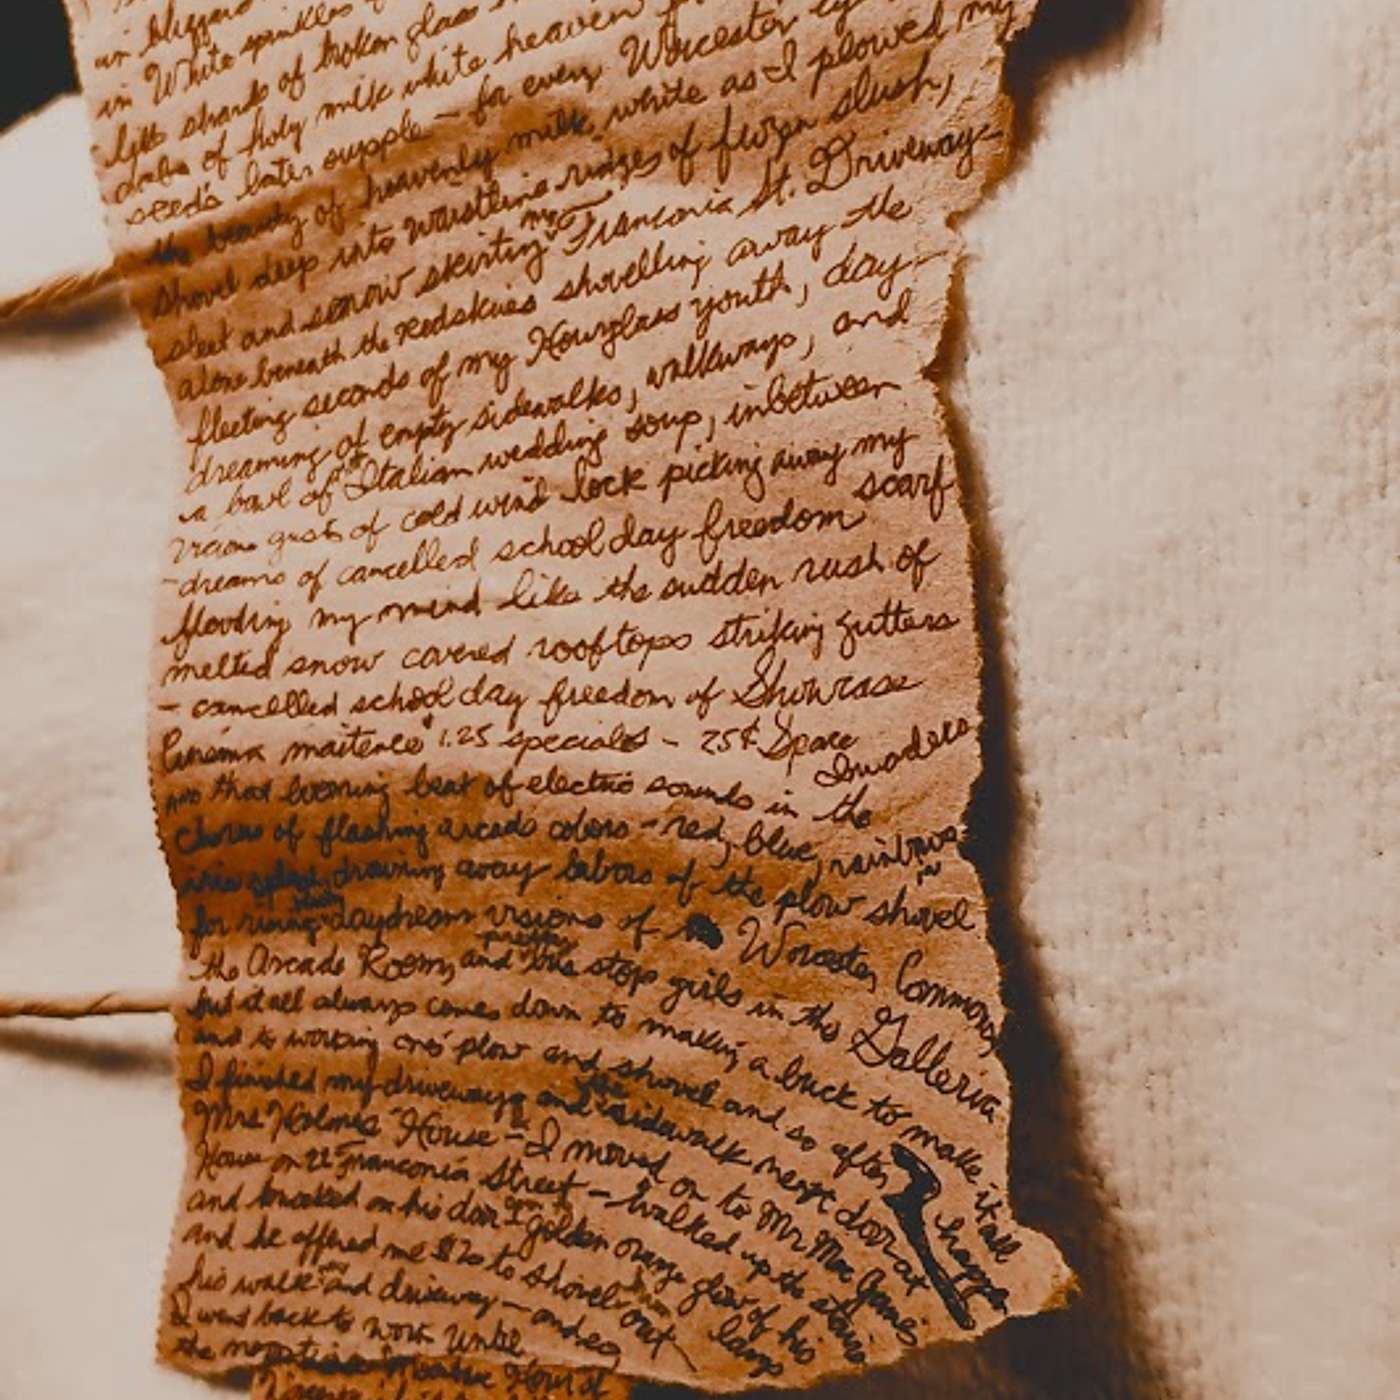 in blizzard
in White sprinkles of
like shards of broken glass
drabs of holy milk white heaven
seeds later supple - for every Worcester eye
the beauty of heavenly milk white as I plowed my
shovel deep into waistline ridges of frozen slush,
sleet and snow skirting my Franconia St. Driveway -
alone beneath the redskies shovelling away the
fleeting seconds of my Hourglass youth, day -
dreaming of empty sidewalks, walkways, and
a bowl of hot Italian wedding soup, inbetween
vicious gusts of cold wind lock picking away my scarf
- dreams of cancelled school day freedom
flooding my mind like the sudden rush of
melted snow covered rooftops striking gutters
- cancelled school day freedom of Showcase
Cinema maitenee $1.25 specials - 25¢ Space Invaders
and that booming beat of electric sounds in the
chorus of flashing arcade colors - red, blue, rainbows
drowning away labors of the plow shovel in
for daydream visions of Worcester Commons,
the Arcade Room, and pretty bus stop girls in the Galleria
but it all always comes down to making a buck to make it all happen
and to working one's plow and shovel and so after
I finished my driveway and the sidewalk next door at
Mrs Holmes House - I moved on to Mr Mac James
House on 22 Franconia Street - walked up the stairs
and knocked on his door golden orange glow of his lamp
and he offered me $20 to shovel out
his walk way and driveway - and so
I went back to work until
the